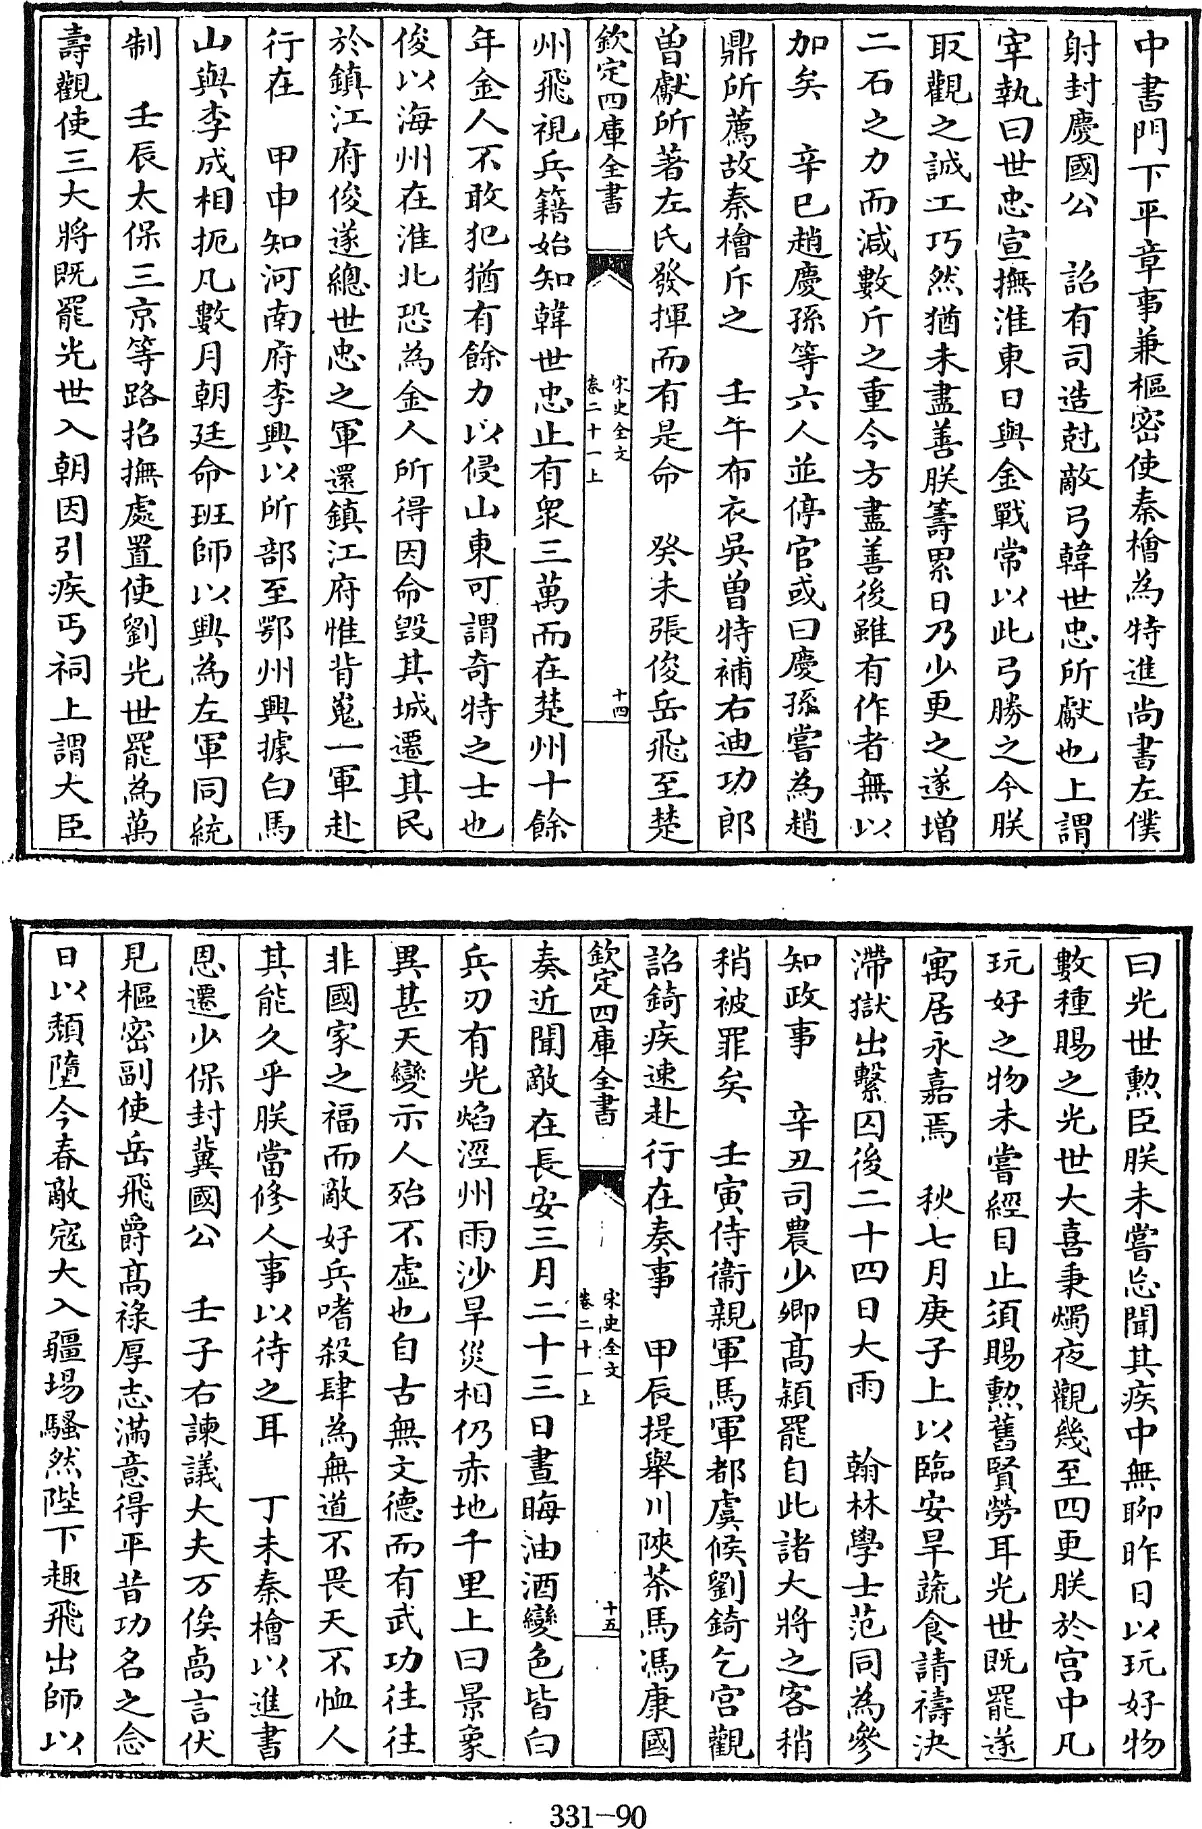 中書門下平章事兼樞密使秦檜為特進尚書左僕
射封慶國公　詔有司造尅敵弓韓世忠所獻也上謂
宰執曰世忠宣撫淮東日與金戰常以此弓勝之今朕
取觀之誠工巧然猶未盡善朕籌累日乃少更之遂增
二石之力而減數斤之重今方盡善後雖有作者無以
加矣　辛巳趙慶孫等六人並停官或曰慶孫嘗為趙
鼎所薦故秦檜斥之　壬午布衣吳曾特補右迪功郎
曾獻所著左氏發揮而有是命　癸未張俊岳飛至楚
欽定四庫全書
宋史全文
卷二十一上
十四
州飛視兵籍始知韓世忠止有眾三萬而在楚州十餘
年金人不敢犯猶有餘力以侵山東可謂奇特之士也
俊以海州在淮北恐為金人所得因命毀其城遷其民
於鎮江府俊遂總世忠之軍還鎮江府惟背嵬一軍赴
行在　甲申知河南府李興以所部至鄂州興據白馬
山與李成相扼凡數月朝廷命班師以興為左軍同統
制　壬辰太保三京等路招撫處置使劉光世罷為萬
壽觀使三大將既罷光世入朝因引疾丐祠上謂大臣
曰光世勲臣朕未嘗忘聞其疾中無聊昨日以玩好物
數種賜之光世大喜秉燭夜觀幾至四更朕於宮中凡
玩好之物未嘗經目止須賜勲舊賢勞耳光世既罷遂
寓居永嘉焉　秋七月庚子上以臨安旱蔬食請禱決
滯獄出繫囚後二十四日大雨　翰林學士范同為參
知政事　辛丑司農少卿高穎罷自此諸大將之客稍
稍被罪矣　壬寅侍衞親軍馬軍都虞候劉錡乞宮觀
詔錡疾速赴行在奏事　甲辰提舉川陝茶馬馮康國
欽定四庫全書
宋史全文
卷二十一上
十五
奏近聞敵在長安三月二十三日晝晦油酒變色皆白
兵刃有光焰涇州雨沙旱災相仍赤地千里上曰景象
異甚天變示人殆不虛也自古無文德而有武功往往
非國家之福而敵好兵嗜殺肆為無道不畏天不恤人
其能久乎朕當修人事以待之耳　丁未秦檜以進書
恩遷少保封冀國公　壬子右諫議大夫万俟卨言伏
見樞密副使岳飛爵高祿厚志滿意得平昔功名之念
日以頹墮今春敵寇大入疆埸騷然陛下趣飛出師以
331-90